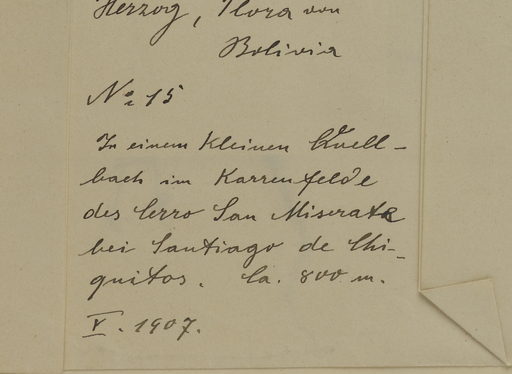 Herzog, Flora von
Bolivia
No 15
In einem kleinen Quell-
bach im Karrenfelde
des Cerro San Miserate
bei Santiago de Chi-
quitos. Ca. 800 m.
V. 1907.